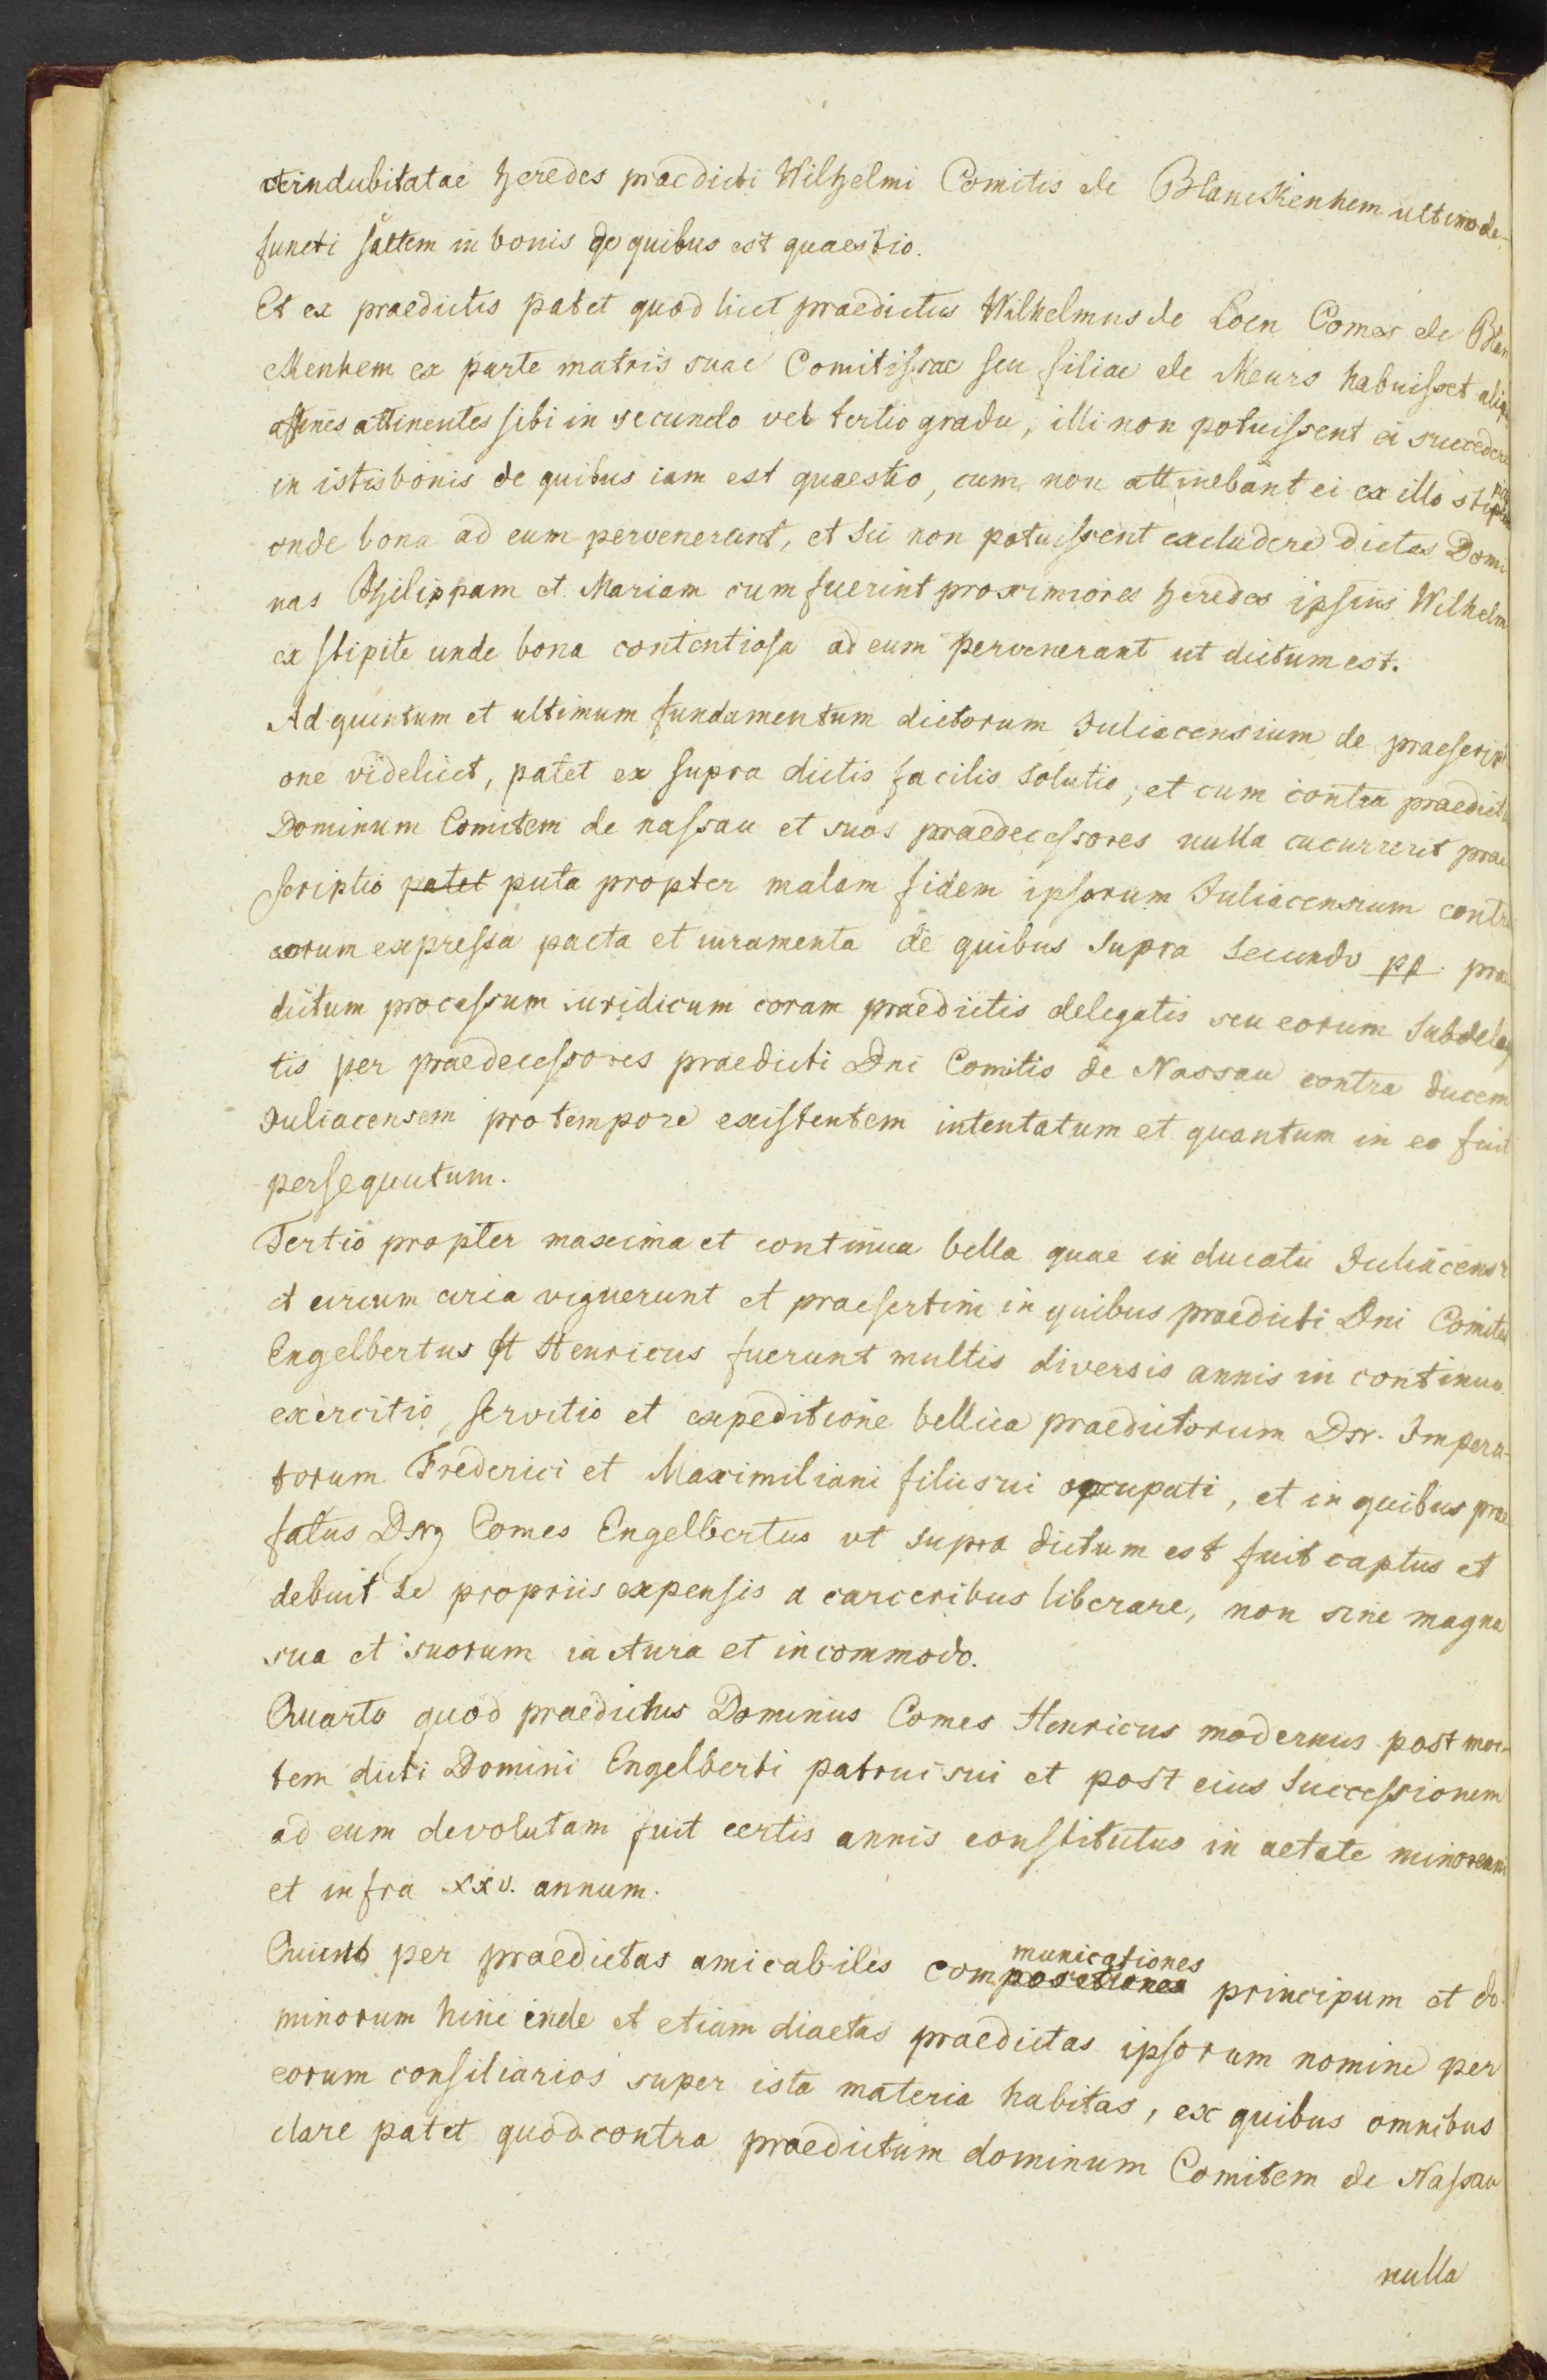 et indubitatae heredes praedicti Wilhelmi Comitis de Blanckenhem ultimo de-
functi saltem in bonis de quibus est quaestio.
Et ex praedictis patet quod licet praedictus Wilhelmus de Loen Comes de Blan
ckenhem ex parte matris suae Comitissae seu filiae de Meurs habuisset aliqu
affines attinentes sibi in secundo vel tertio gradu, illi non potuissent ei succedere
in istis bonis de quibus iam est quaestio, cum non attinebant ei ex illo stipite
onde bona ad eum pervenerunt, et sic non potuissent excludere dictas Domi
nas Philippam et Mariam cum fuerint proximiores heredes ipsius Wilhelm
ex stipite unde bona contentiosa ad eum pervenerant ut dictum est.
Ad quintum et ultimum fundamentum dictorum Iuliacensium de praescripti
one videlicet, patet ex supra dictis facilis solutio, et cum contra praedict
Dominum Comitem de nassau et suos praedecessores nulla cucurrerit prae
scriptio patet puta propter malam fidem ipsorum Iuliacensium contra
eorum expressa pacta et iuramenta de quibus supra secundo pp. prae
dictum processum iuridicum coram praedictis delegatis seu eorum subdeleg
tis per praedecessores praedicti Dni Comitis de Nassau contra ducem
Iuliacensem pro tempore existentem intentatum et quantum in eo fuit
persequutum.
Tertio propter maxima et continua bella quae in ducatu Iuliacensi
et circum circa viguerunt et praesertim in quibus praedicti Dni Comites
Engelbertus et Henricus fuerunt multis diversis annis in continuo
exercitio, servitio et expeditione bellica praedictorum Dnr. Impera-
torum Frederici et Maximiliani filii sui occupati, et in quibus prae
fatus Dns Comes Engelbertus ut supra dictum est fuit captus et
debuit se propriis expensis a carceribus liberare, non sine magna
sua et suorum iactura et incommodo.
Quarto quod praedictus Dominus Comes Henricus modernus post mor-
tem dicti Domini Engelberti patrui sui et post eius successionem
ad eum devolutam fuit certis annis constitutus in aetate minorenni
et infra xxv. annum.
Quinto per praedictas amicabiles compositiones municationes principum et do
minorum hinc inde et etiam diaetas praedictas ipsorum nomine per
eorum consiliarios super ista materia habitas, ex quibus omnibus
clare patet quod contra praedictum dominum Comitem de Nassau
nulla